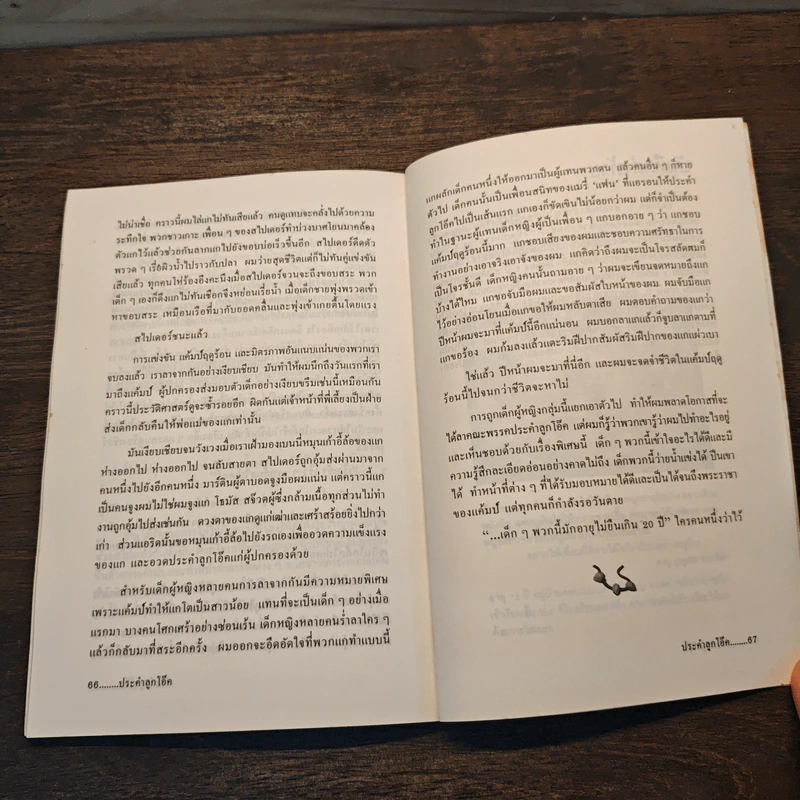 ไม่น่าเชื่อ คราวนี้ผมไล่แกไม่ทันเสียแล้ว คนดูแทบจะคลั่งไปด้วยความ
ระทึกใจ พวกชาวเกาะ เพื่อน ๆ ของสไปเดอร์ทำบ่วงบาศโยนมาคล้อง
ตัวแกไว้แล้วช่วยกันลากแกไปยังขอบบ่อเร็วขึ้นอีก สไปเดอร์ดีดตัว
พรวด ๆ เรี่ยผิวน้ำไปราวกับปลา ผมว่ายสุดชีวิตแต่ก็ไม่ทันคู่แข่งขัน
เสียแล้ว ทุกคนโห่ร้องอึงคะนึงเมื่อสไปเดอร์จวนจะถึงขอบสระ พวก
เด็ก ๆ เองก็ดึงแกไม่ทันเชือกจึงหย่อนเรี่ยน้ำ เมื่อเด็กชายพุ่งพรวดเข้า
หาขอบสระ เหมือนเรือที่มากับยอดคลื่นและพุ่งเข้าเกยตื้นโดยแรง
สไปเดอร์ชนะแล้ว
การแข่งขัน แค้มป์ฤดูร้อน และมิตรภาพอันแนบแน่นของพวกเรา
จบลงแล้ว เราลาจากกันอย่างเงียบเชียบ มันทำให้ผมนึกถึงวันแรกที่เรา
มาถึงแค้มป์ ผู้ปกครองส่งมอบตัวเด็กอย่างเงียบขรึมเช่นนี้เหมือนกัน
คราวนี้ประวัติศาสตร์ดูจะซ้ำรอยอีก ผิดกันแต่เจ้าหน้าที่พี่เลี้ยงเป็นฝ่าย
ส่งเด็กกลับคืนให้พ่อแม่ของแกเท่านั้น
มันเงียบเชียบจนวังเวงเมื่อเราเฝ้ามองเบนนี่หมุนเก้าอี้ล้อของแก
ห่างออกไป ห่างออกไป จนลับสายตา สไปเดอร์ถูกอุ้มส่งผ่านมาจาก
คนหนึ่งไปยังอีกคนหนึ่ง มาร์ตินผู้ตาบอดจูงมือผมแน่น แต่คราวนี้แก
เป็นคนจูงผมไม่ใช่ผมจูงแก โธมัส สจ๊วตผู้ซึ่งกล้ามเนื้อทุกส่วนไม่ทำ
งานถูกอุ้มไปส่งเช่นกัน ดวงตาของแกดูแก่เฒ่าและเศร้าสร้อยยิ่งไปกว่า
เก่า ส่วนแอริดนั้นขอหมุนเก้าอี้ล้อไปยังรถเองเพื่ออวดความแข็งแรง
ของแก และอวดประคำลูกโอ๊คแก่ผู้ปกครองด้วย
สำหรับเด็กผู้หญิงหลายคนการลาจากกันมีความหมายพิเศษ
เพราะแค้มป์ทำให้แกโตเป็นสาวน้อย แทนที่จะเป็นเด็ก ๆ อย่างเมื่อ
แรกมา บางคนโศกเศร้าอย่างซ่อนเร้น เด็กหญิงหลายคนร่ำลาใคร ๆ
แล้วก็กลับมาที่สระอีกครั้ง ผมออกจะอึดอัดใจที่พวกแกทำแบบนี้
66........ประคำลูกโอ๊ค
แกผลักเด็กคนหนึ่งให้ออกมาเป็นผู้แทนพวกตน แล้วคนอื่น ๆ ก็หาย
ตัวไป เด็กคนนั้นเป็นเพื่อนสนิทของแมรี่ 'แฟน' ที่แอรอนให้ประคำ
ลูกโอ๊คไปเป็นเส้นแรก แกเองก็ขัดเขินไม่น้อยกว่าผม แต่ก็จำเป็นต้อง
ทำในฐานะผู้แทนเด็กหญิงผู้เป็นเพื่อน ๆ แกบอกอาย ๆ ว่า แกชอบ
แค้มป์ฤดูร้อนนี้มาก แกชอบเสียงของผมและชอบความศรัทธาในการ
ทำงานอย่างเอาจริงเอาจังของผม แกคิดว่าถึงผมจะเป็นโจรสลัดผมก็
เป็นโจรชั้นดี เด็กหญิงคนนั้นถามอาย ๆ ว่าผมจะเขียนจดหมายถึงแก
บ้างได้ไหม แกขอจับมือผมและขอสัมผัสใบหน้าของผม ผมจับมือแก
ไว้อย่างอ่อนโยนเมื่อแกขอให้ผมหลับตาเสีย ผมตอบคำถามของแกว่า
ปีหน้าผมจะมาที่แค้มป์นี้อีกแน่นอน ผมบอกลาแกแล้วก็จูบลาแกตามที่
แกขอร้อง ผมก้มลงแล้วแตะริมฝีปากสัมผัสริมฝีปากของแกแผ่วเบา
ใช่แล้ว ปีหน้าผมจะมาที่นี่อีก และผมจะจดจำชีวิตในแค้มป์ฤดู
ร้อนนี้ไปจนกว่าชีวิตจะหาไม่
การถูกเด็กผู้หญิงกลุ่มนี้แยกเอาตัวไป ทำให้ผมพลาดโอกาสที่จะ
ได้ลาคณะพรรคประคำลูกโอ๊ค แต่ผมก็รู้ว่าพวกเขารู้ว่าผมไปทำอะไรอยู่
และเห็นชอบด้วยกับเรื่องพิเศษนี้ เด็ก ๆ พวกนี้เข้าใจอะไรได้ดีและมี
ความรู้สึกละเอียดอ่อนอย่างคาดไม่ถึง เด็กพวกนี้ว่ายน้ำแข่งได้ ปีนเขา
ได้ ทำหน้าที่ต่าง ๆ ที่ได้รับมอบหมายได้ดีและเป็นได้จนถึงพระราชา
ของแค้มป์ แต่ทุกคนก็กำลังรอวันตาย
"...เด็ก ๆ พวกนี้มักอายุไม่ยืนเกิน 20 ปี" ใครคนหนึ่งว่าไว้
ประคำลูกโอ๊ค........67